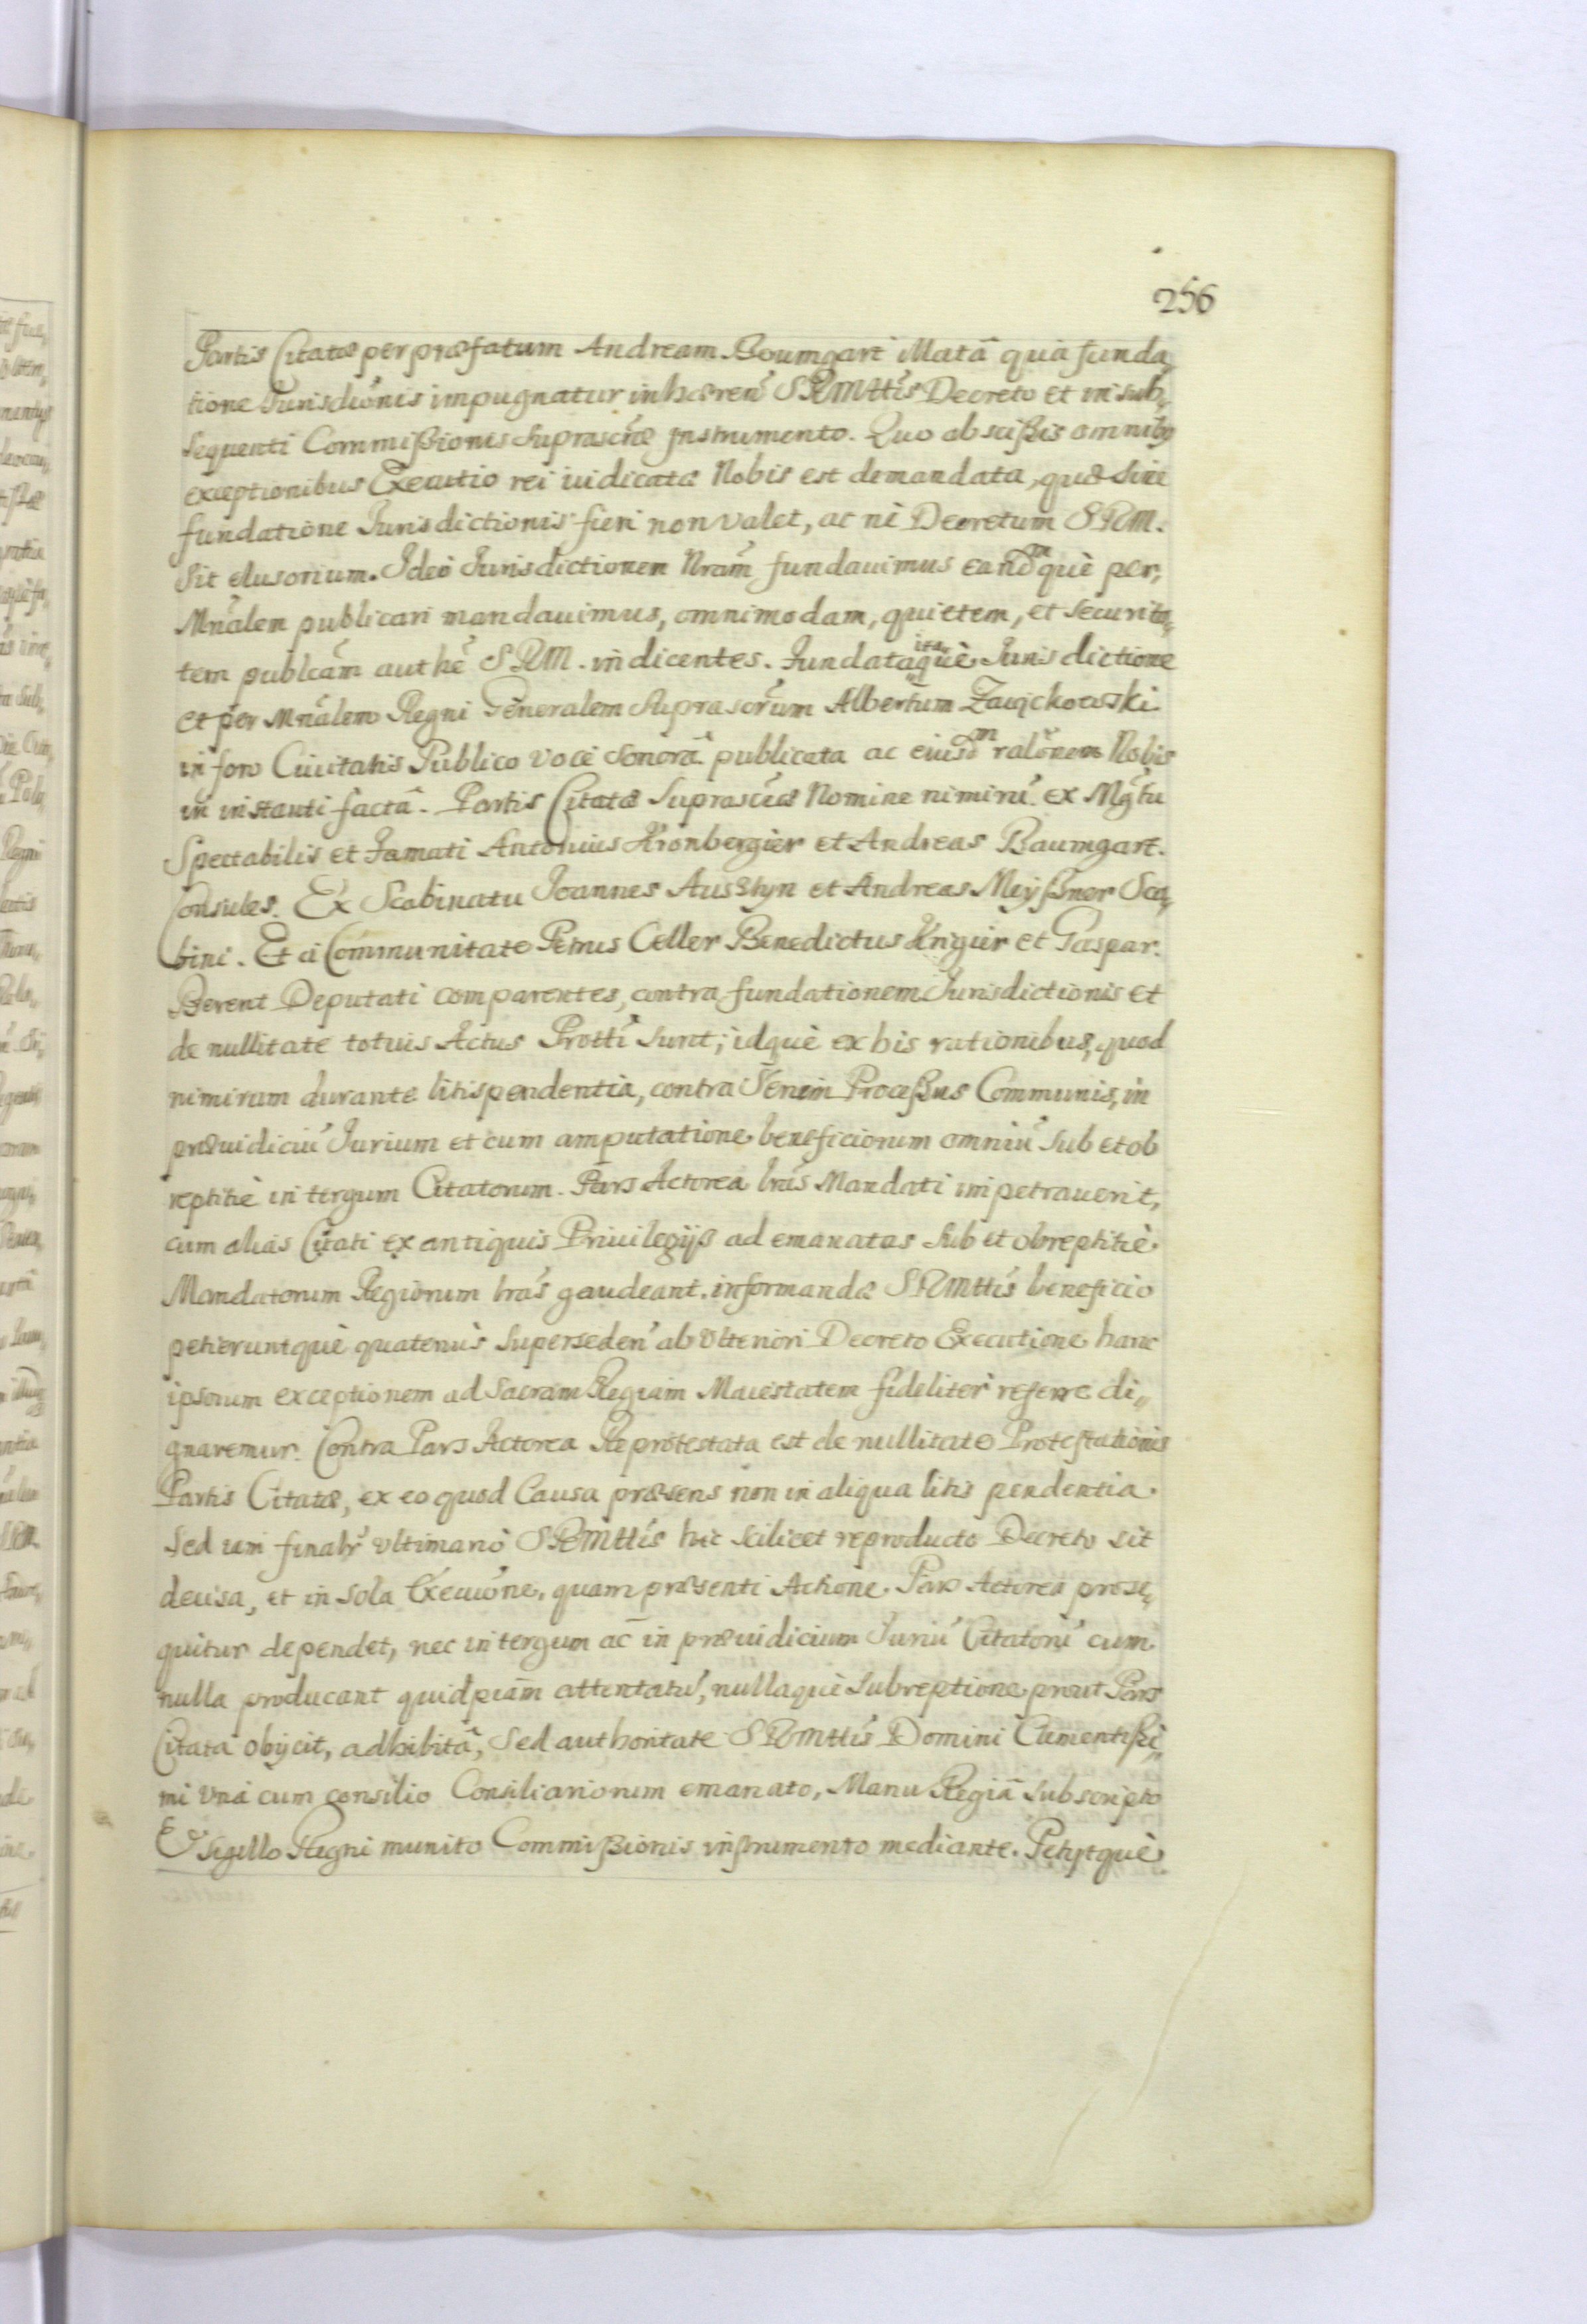 256
Partis Citatæ per præfatum Andream Boumgart illatâ quâ funda„
tione Jurisdiónis impugnatur inhæreń SRMttis Decreto et in sub„
sequenti Commißionis suprascriptæ Instrumento. Quo abscißis omnibus
exceptionibus Executio rei iudicatæ Nobis est demandata, quæ sine
fundatione Jurisdictionis fieri non valet, ac ne Decretum SRM.
sit elusorium. Ideo Jurisdictionem Nram̃ fundauimus eandmque per„
Mnálem publicari mandauimus, omnimodam, quietem, et securita„
tem publcam̃ authẽ SRM. indicentes. Fundata itaquè Jurisdictione
et per Mnálem Regni Generalem suprascrum̃ Albertum
in foro Ciuitatis Publico voce sonorâ publicata ac eiusdm ralónem Nobis
in instanti factâ. Partis Citatæ suprascæ Nomine nimirũ ex Mgr̃tu
Spectabilis et Famati Antonius Kronbergier et Andreas Baumgart.
Consules. Ex Scabinatu Joannes Austyn et Andreas Meyßner Sca„
bini. Et à Communitate Petrus Celler Benedictus Krigier et Gaspar.
Berent Deputati comparentes, contra fundationem Jurisdictionis et
de nullitate totius Actus Protti sunt; idquè ex his rationibus, quod
nimirum durante litispendentia, contra Seriem Proceßus Communis, in
præiudiciũ Jurium et cum amputatione beneficiorum omniũ sub et ob
reptitiè in tergum Citatorum. Pars Actorea lrás Mandati impetrauerit,
cum alias Citati ex antiquis Priuilegijs ad emanatas sub et obreptitiè
Mandatorum Regiorum lrás gaudeant informandæ SRMttis beneficio
petieruntquè quatenùs supersedeń ab vlteriori Decreto Executione hanc
ipsorum exceptionem ad Sacram Regiam Maiestatem fideliter referre di„
gnaremur. Contra Pars Actorea Reprotestata est de nullitate Protestationis
Partis Citatæ, ex eo quod Causa præsens non in aliqua litis pendentia
sed iam finalr̃ vltimariò SRMttis hic scilicet reproducto Decreto sit
decisa, et in sola Execuóne, quam præsenti Actione Pars Actorea prose„
quitur dependet, nec in tergum ac in præiudicium Juriũ Citatorũ cum
nulla producant quidpiam attentatũ, nullaquè subreptione prout Pars
Citata obijcit, adhibitâ, sed authoritate SRMttis Domini Clementißi„
mi vnà cum consilio Consiliariorum emanato, Manu Regiâ subscripto
Et Sigillo Regni munito Commißionis instrumento mediante. Petijtquè